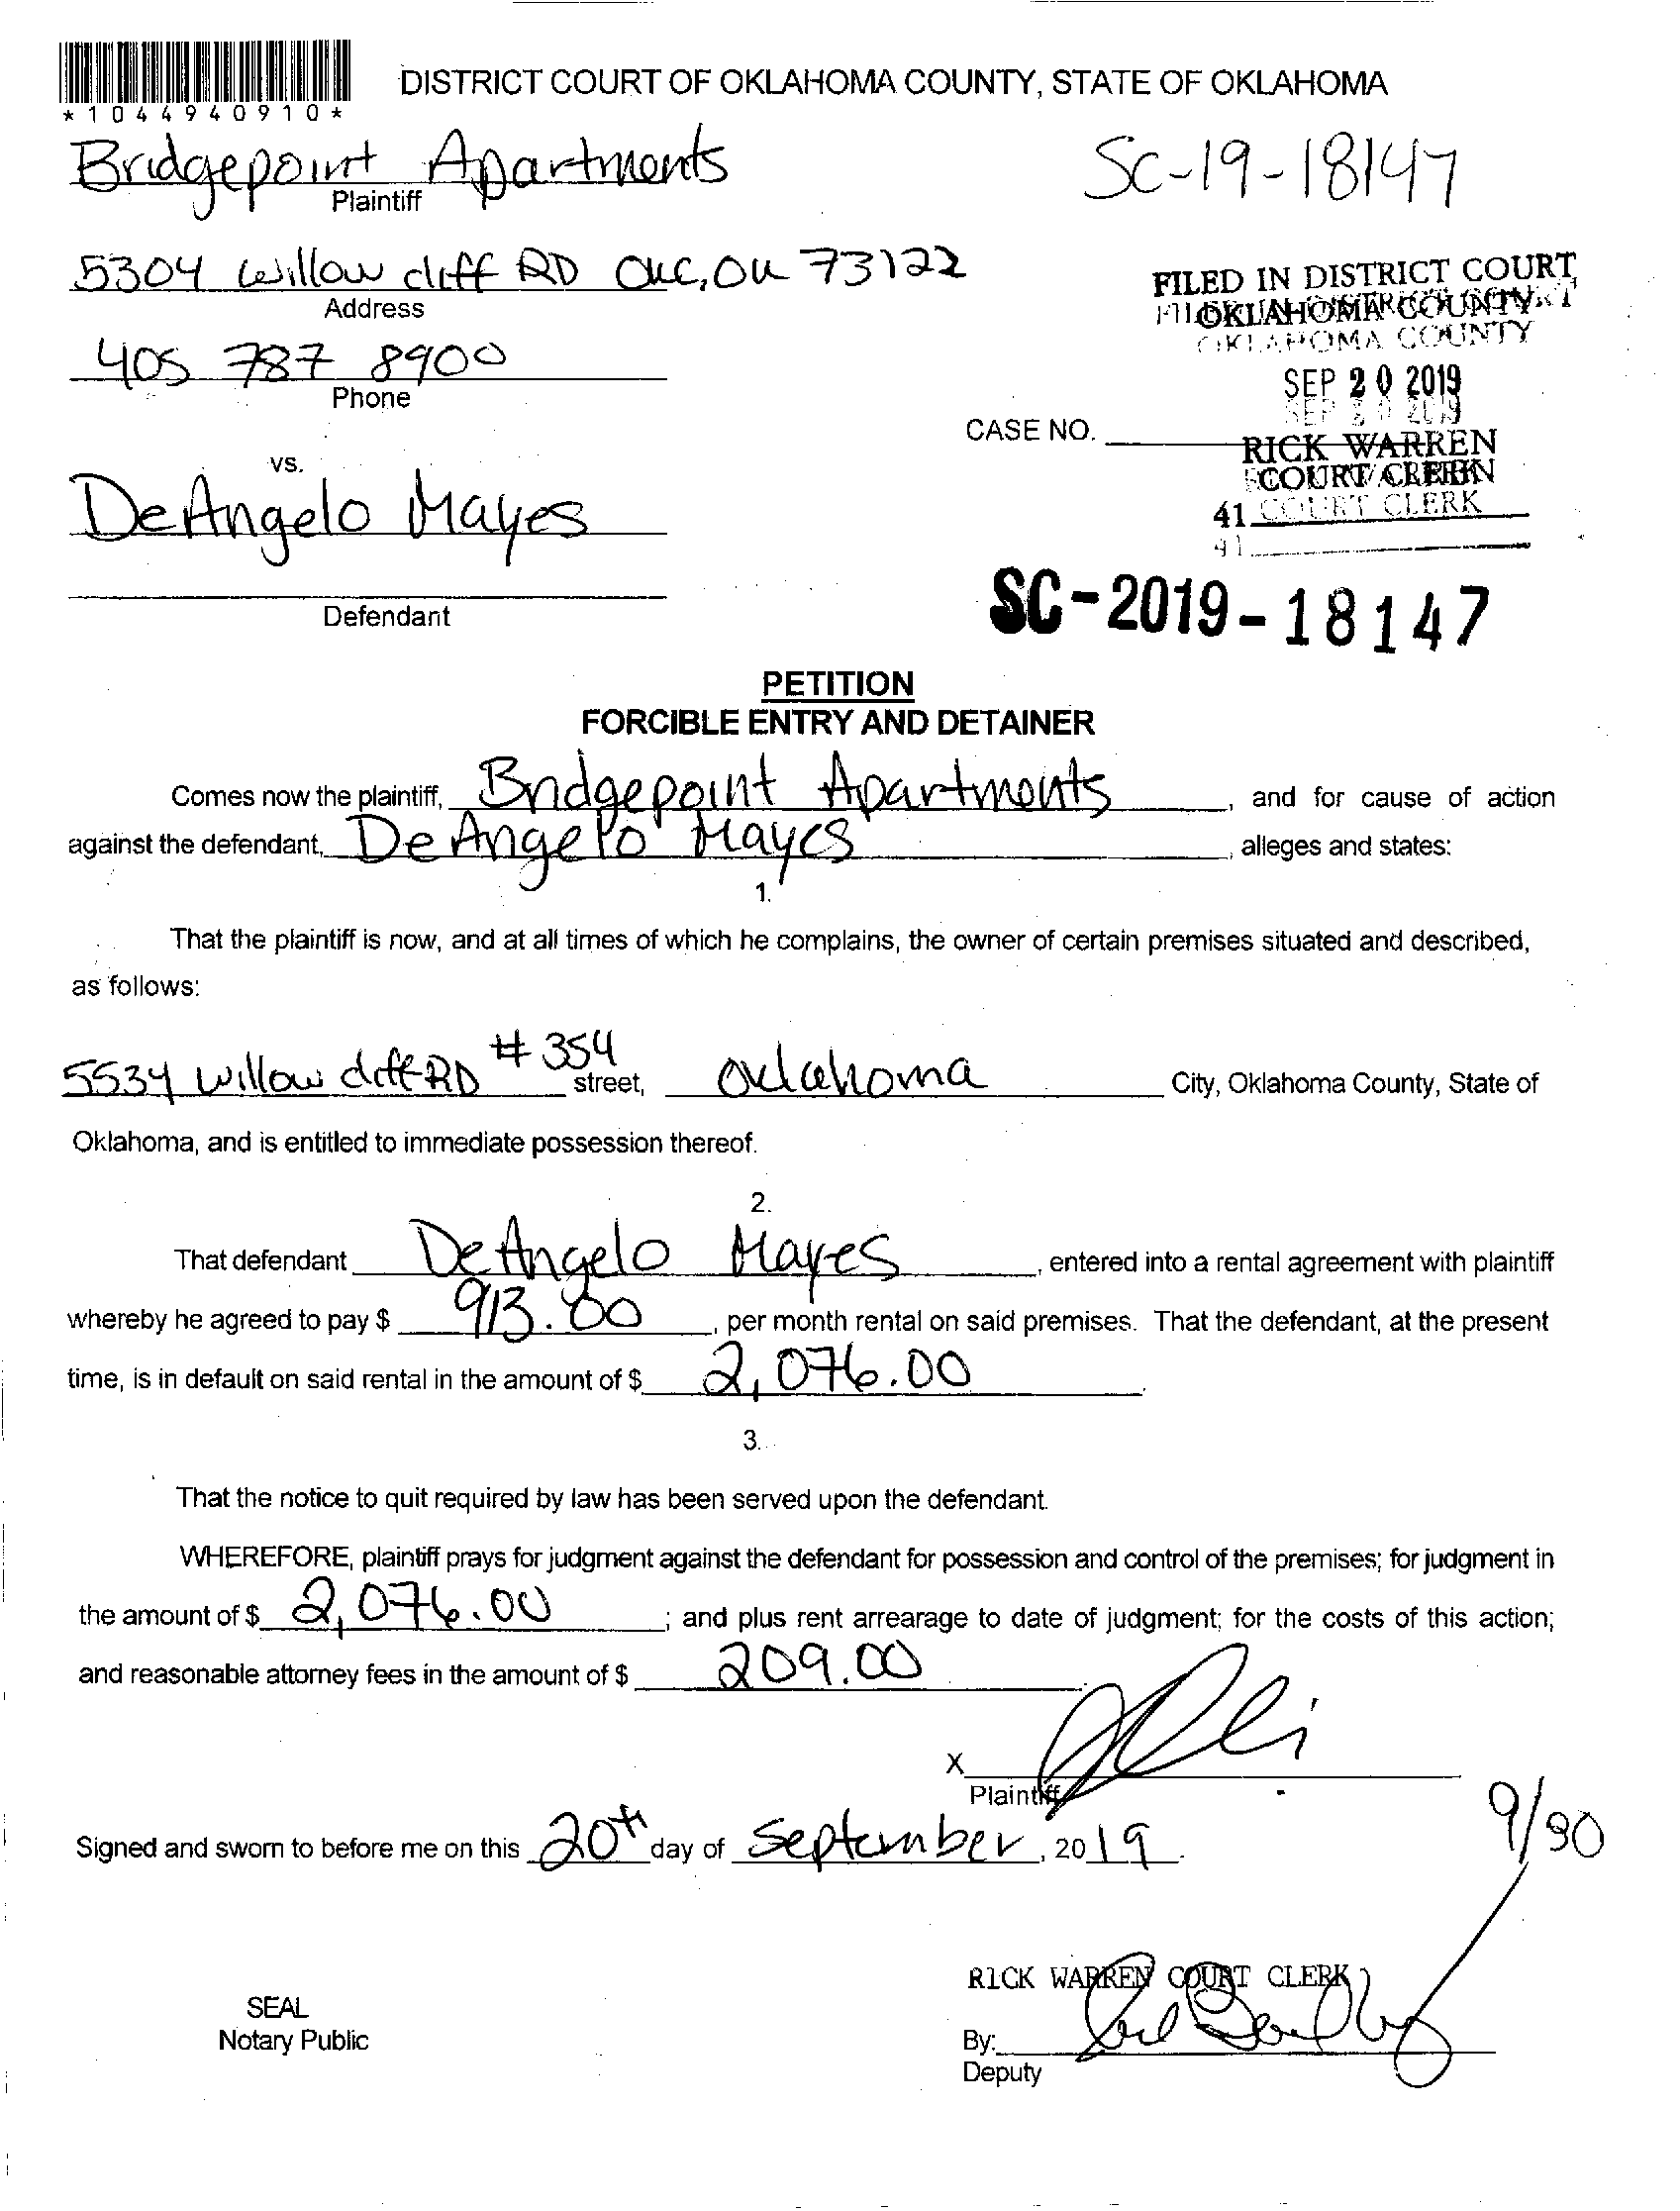 *1044940910*
DISTRICT COURT OF OKLAHOMA COUNTY, STATE OF OKLAHOMA
Bridgepoint Apartments
Plaintiff
SC-19-18147
5304 Willow cliff RD OKC, OK 73122
Address
FILED IN DISTRICT COURT
OKLAHOMA COUNTY
OKLAHOMA COUNTY
405 787 8900
Phone
SEP 20 2019
CASE NO.
RICK WARREN
COURT CLERK
COURT CLERK
41
41
vs.
DeAngelo Mayes
Defendant
SC-2019-18147
PETITION
FORCIBLE ENTRY AND DETAINER
Comes now the plaintiff, Bridgepoint Apartments, and for cause of action
against the defendant, DeAngelo Mayes, alleges and states:
1.
That the plaintiff is now, and at all times of which he complains, the owner of certain premises situated and described,
as follows:
5534 Willow cliff RD #354 street, Oklahoma City, Oklahoma County, State of
Oklahoma, and is entitled to immediate possession thereof.
2.
That defendant DeAngelo Mayes, entered into a rental agreement with plaintiff
whereby he agreed to pay $ 913.00, per month rental on said premises. That the defendant, at the present
time, is in default on said rental in the amount of $ 2,076.00.
3.
That the notice to quit required by law has been served upon the defendant.
WHEREFORE, plaintiff prays for judgment against the defendant for possession and control of the premises; for judgment in
the amount of $ 2,076.00; and plus rent arrearage to date of judgment; for the costs of this action;
and reasonable attorney fees in the amount of $ 209.00.
X
Plaintiff
9/30
Signed and sworn to before me on this 20th day of September, 2019.
RICK WARREN COURT CLERK
SEAL
Notary Public
By:
Deputy